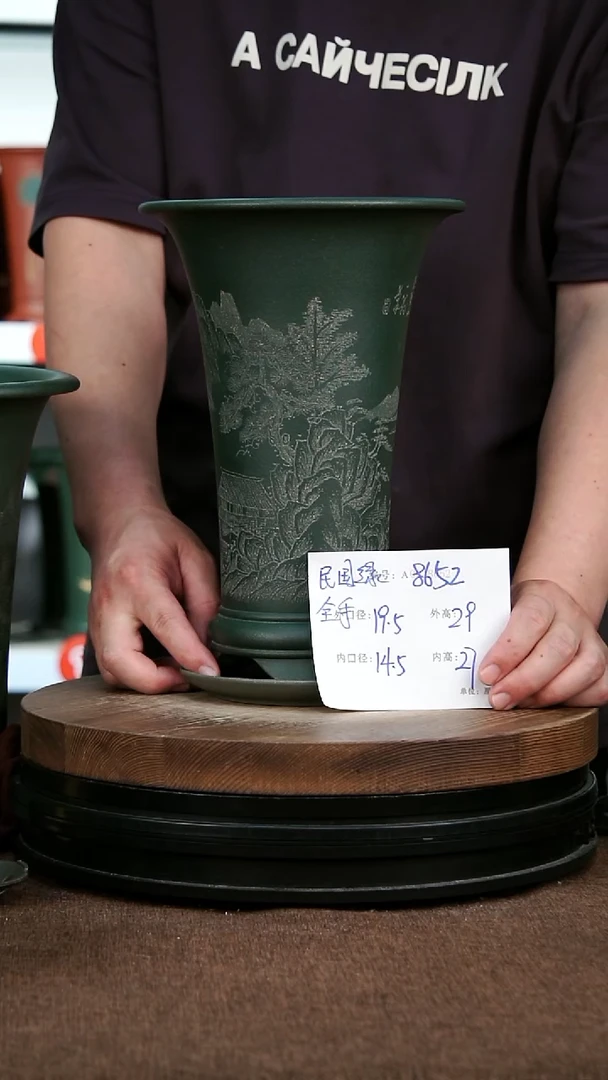 А САЙЧЕСІЛК
民国绿 号: A 8652
全手 径: 19.5 外高 29
内口径: 14.5 内高: 27
单位: